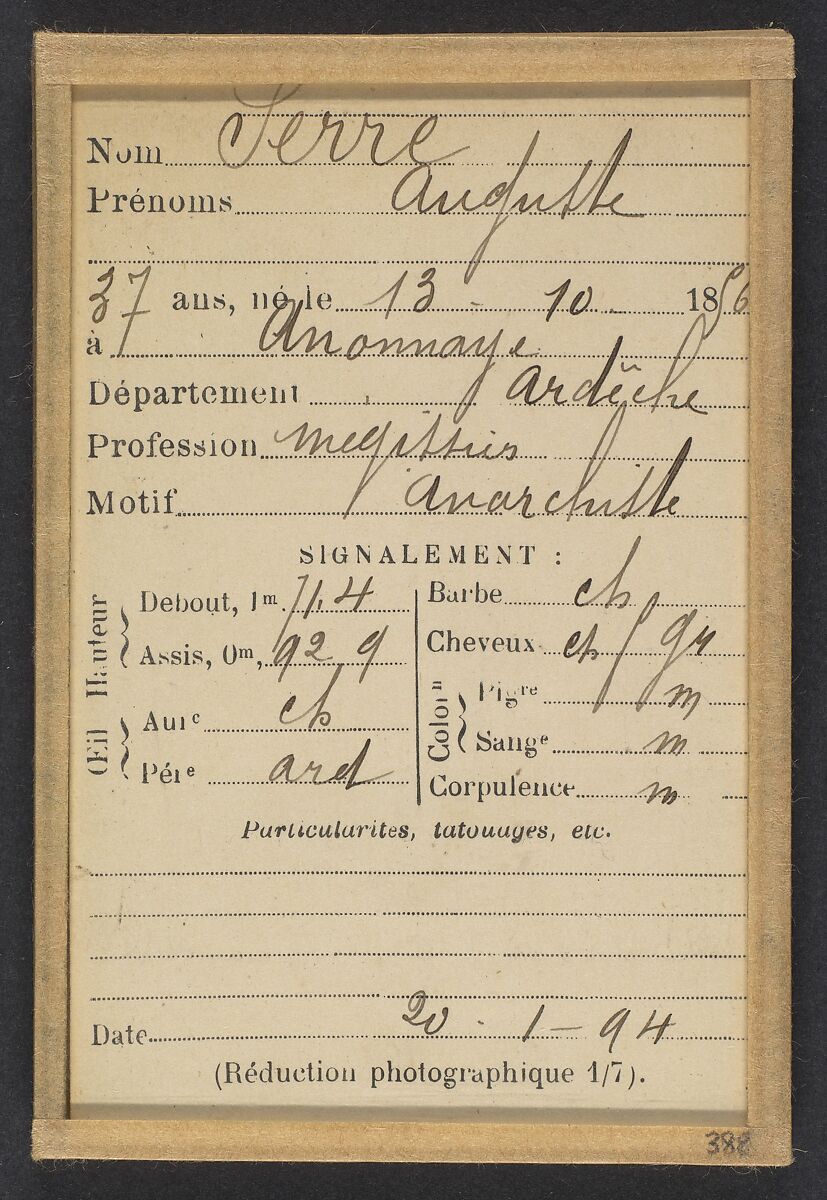 Nom Serre
Prénoms Auguste
37 ans, né le 13 - 10 - 1856
à Anonnaye
Département Ardèche
Profession Mégissier
Motif Anarchiste
SIGNALEMENT :
Hauteur
Debout, 1m. 71,4
Assis, 0m, 92,9
Œil
Aure ch
Pére ard
Barbe ch
Cheveux ch gr
Colorn
Pigre m
Sange m
Corpulence m
Particularités, tatouages, etc.
Date 20 - 1 - 94
(Réduction photographique 1/7).
388